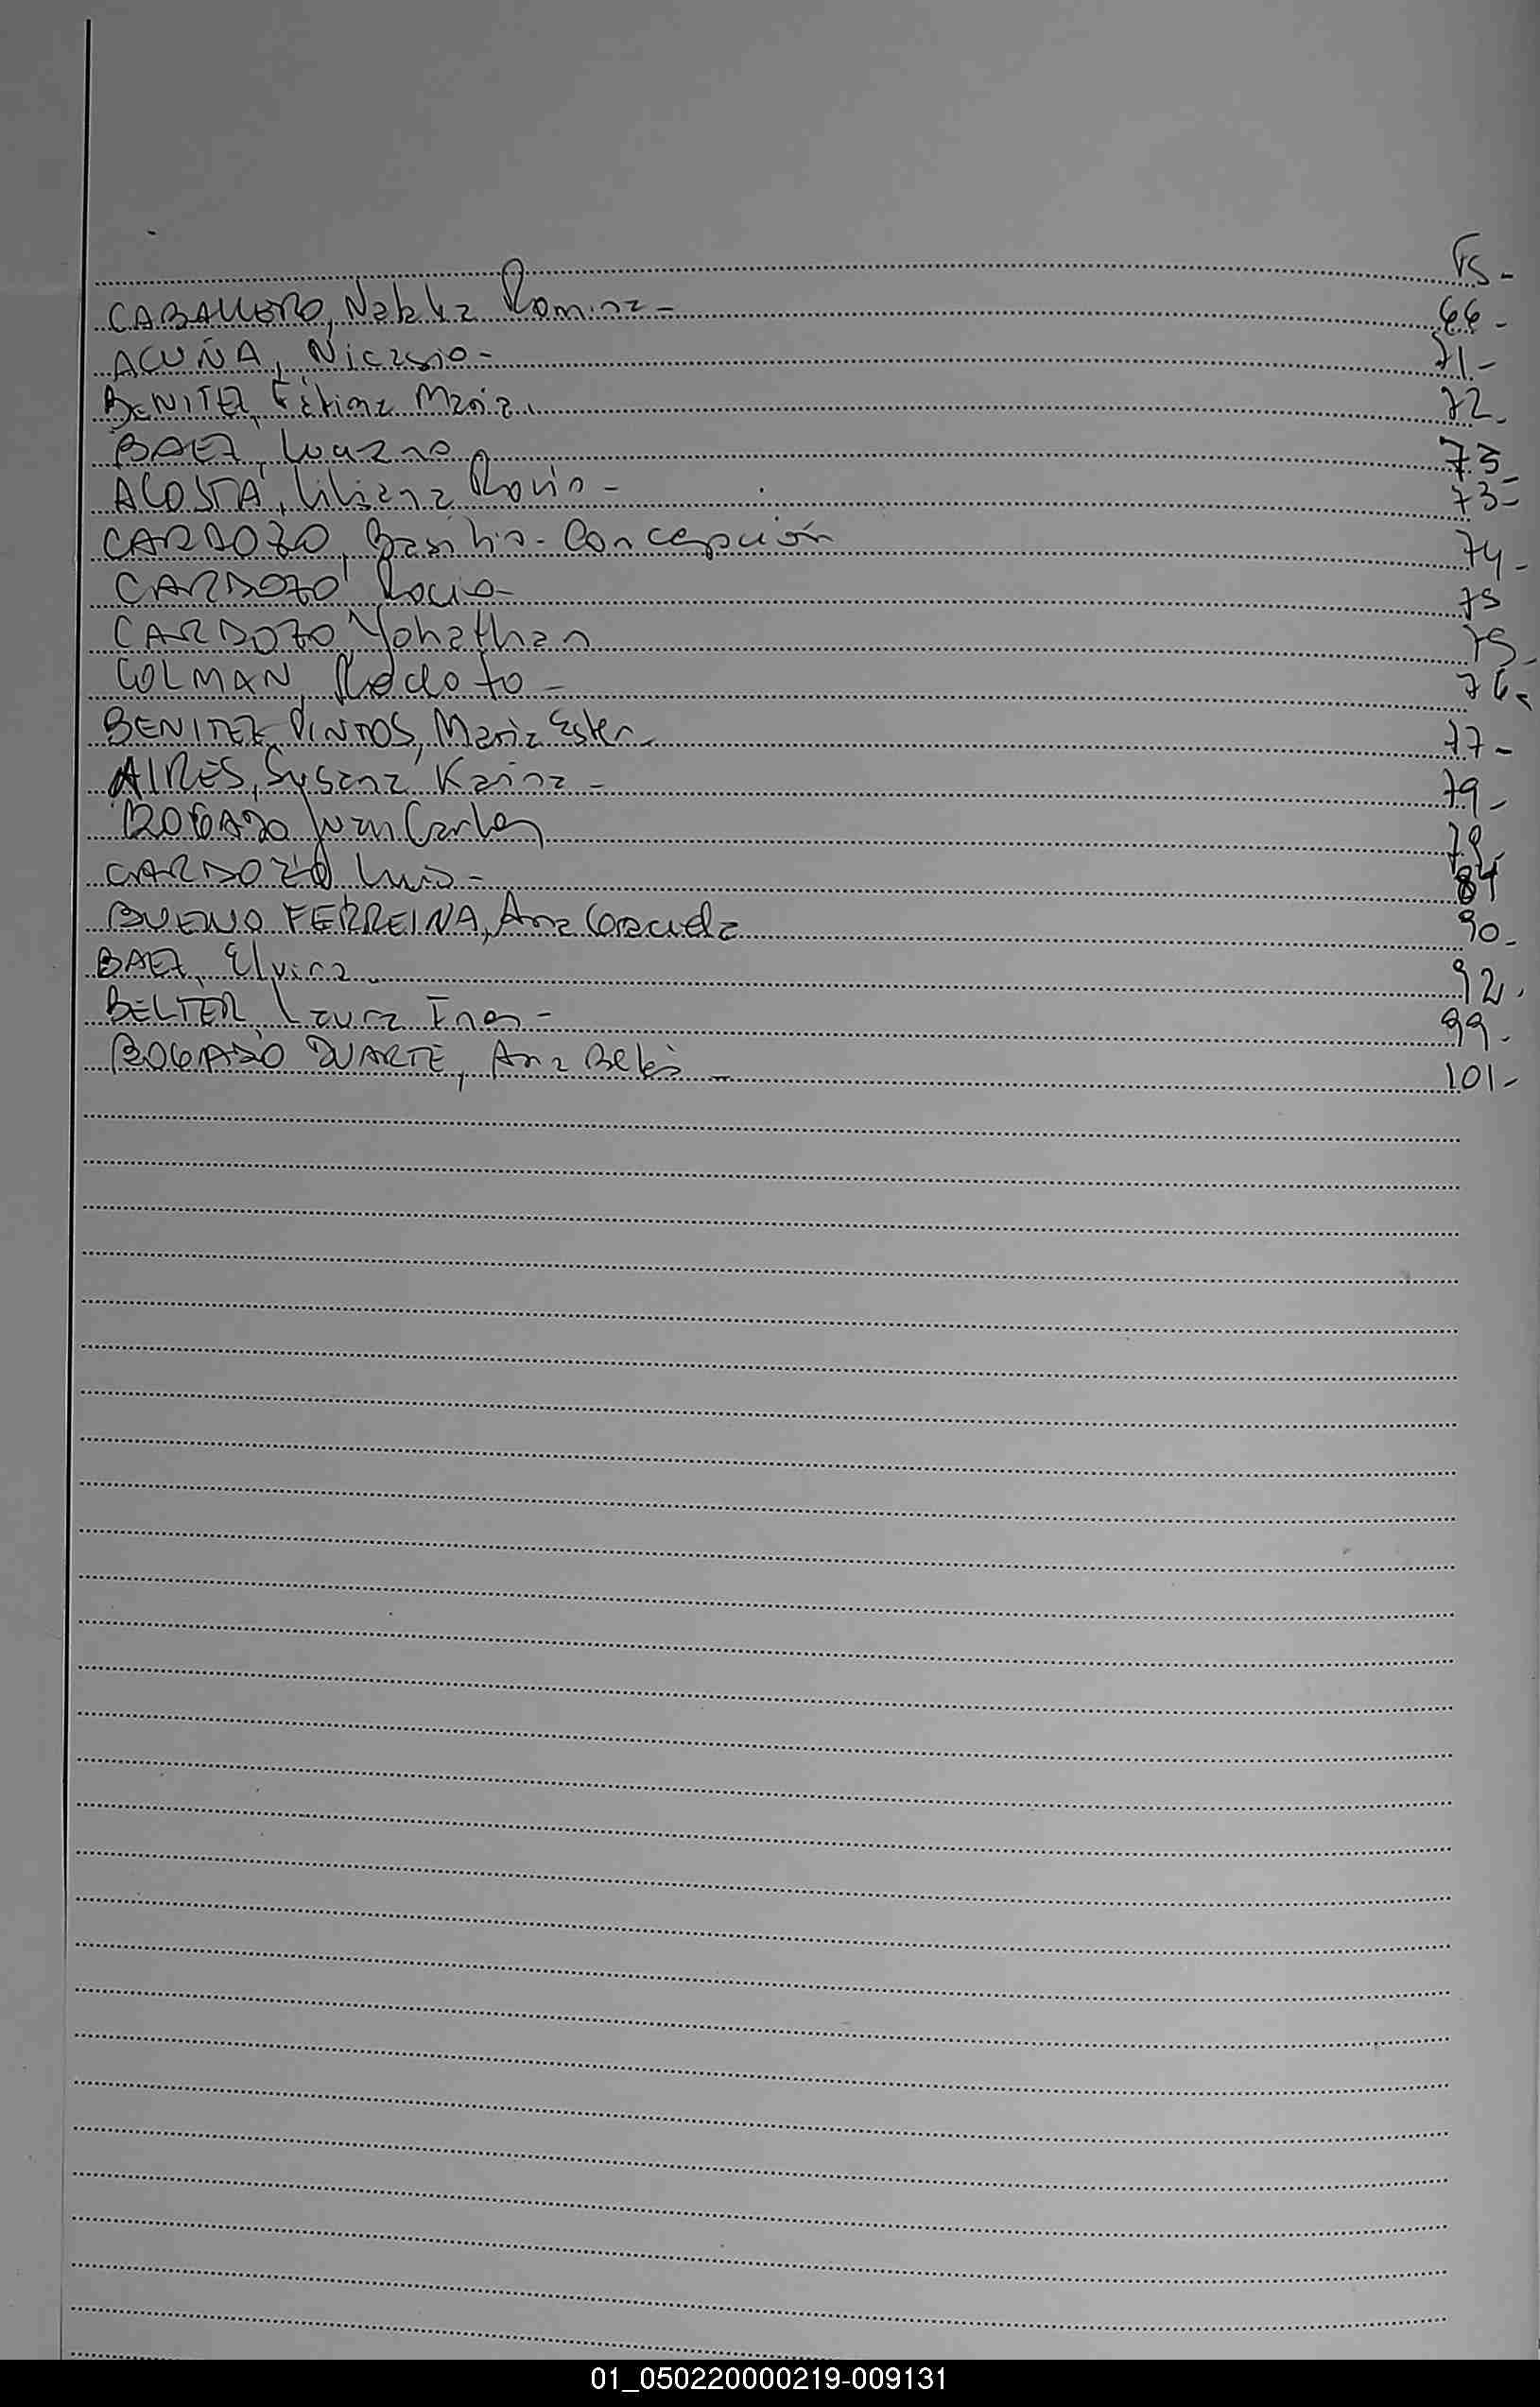 Fs-
CABALLERO, Natalia Romina- 66-
ACUÑA, Nicasio- 71-
BENITEZ, Fátima Maria. 72-
BAEZ, Luciano 73
ACOSTA, Liliana Rocio- 73-
CARDOZO, Basilio-Concepción 74-
CARDOZO Rocio- 75
CARDOZO Yohathan 75-
COLMAN, 76-
BENITEZ PINTOS, Maria Ester- 77-
AIRES, Susana Karina- 79-
BOGADO Juan Carlos 79-
CARDOZO Luis- 84
BUENO FERREIRA, Ana Graciela 90-
BAEZ, Elvira 92-
BELTER, Laura Ines- 99-
BOGADO DUARTE, Ana Belén - 101-
01_050220000219-009131